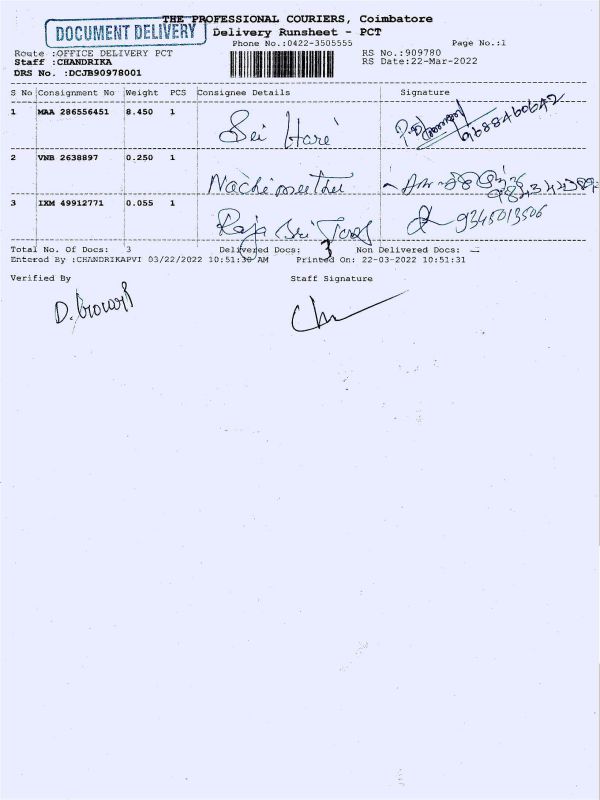 THE PROFESSIONAL COURIERS, Coimbatore
DOCUMENT DELIVERY
Delivery Runsheet - PCT
Phone No.:0422-3505555
Page No.:1
Route :OFFICE DELIVERY PCT
RS No.:909780
Staff :CHANDRIKA
RS Date:22-Mar-2022
DRS No. :DCJB90978001
S No Consignment No Weight PCS Consignee Details Signature
1 MAA 286556451 8.450 1 Sri Hari 9688460642
2 VNB 2638897 0.250 1 Nachimuthu
3 IXM 49912771 0.055 1 Raja Sri 9345013506
Total No. Of Docs: 3 Delivered Docs: 3 Non Delivered Docs: —
Entered By :CHANDRIKAPVI 03/22/2022 10:51:30 AM Printed On: 22-03-2022 10:51:31
Verified By Staff Signature